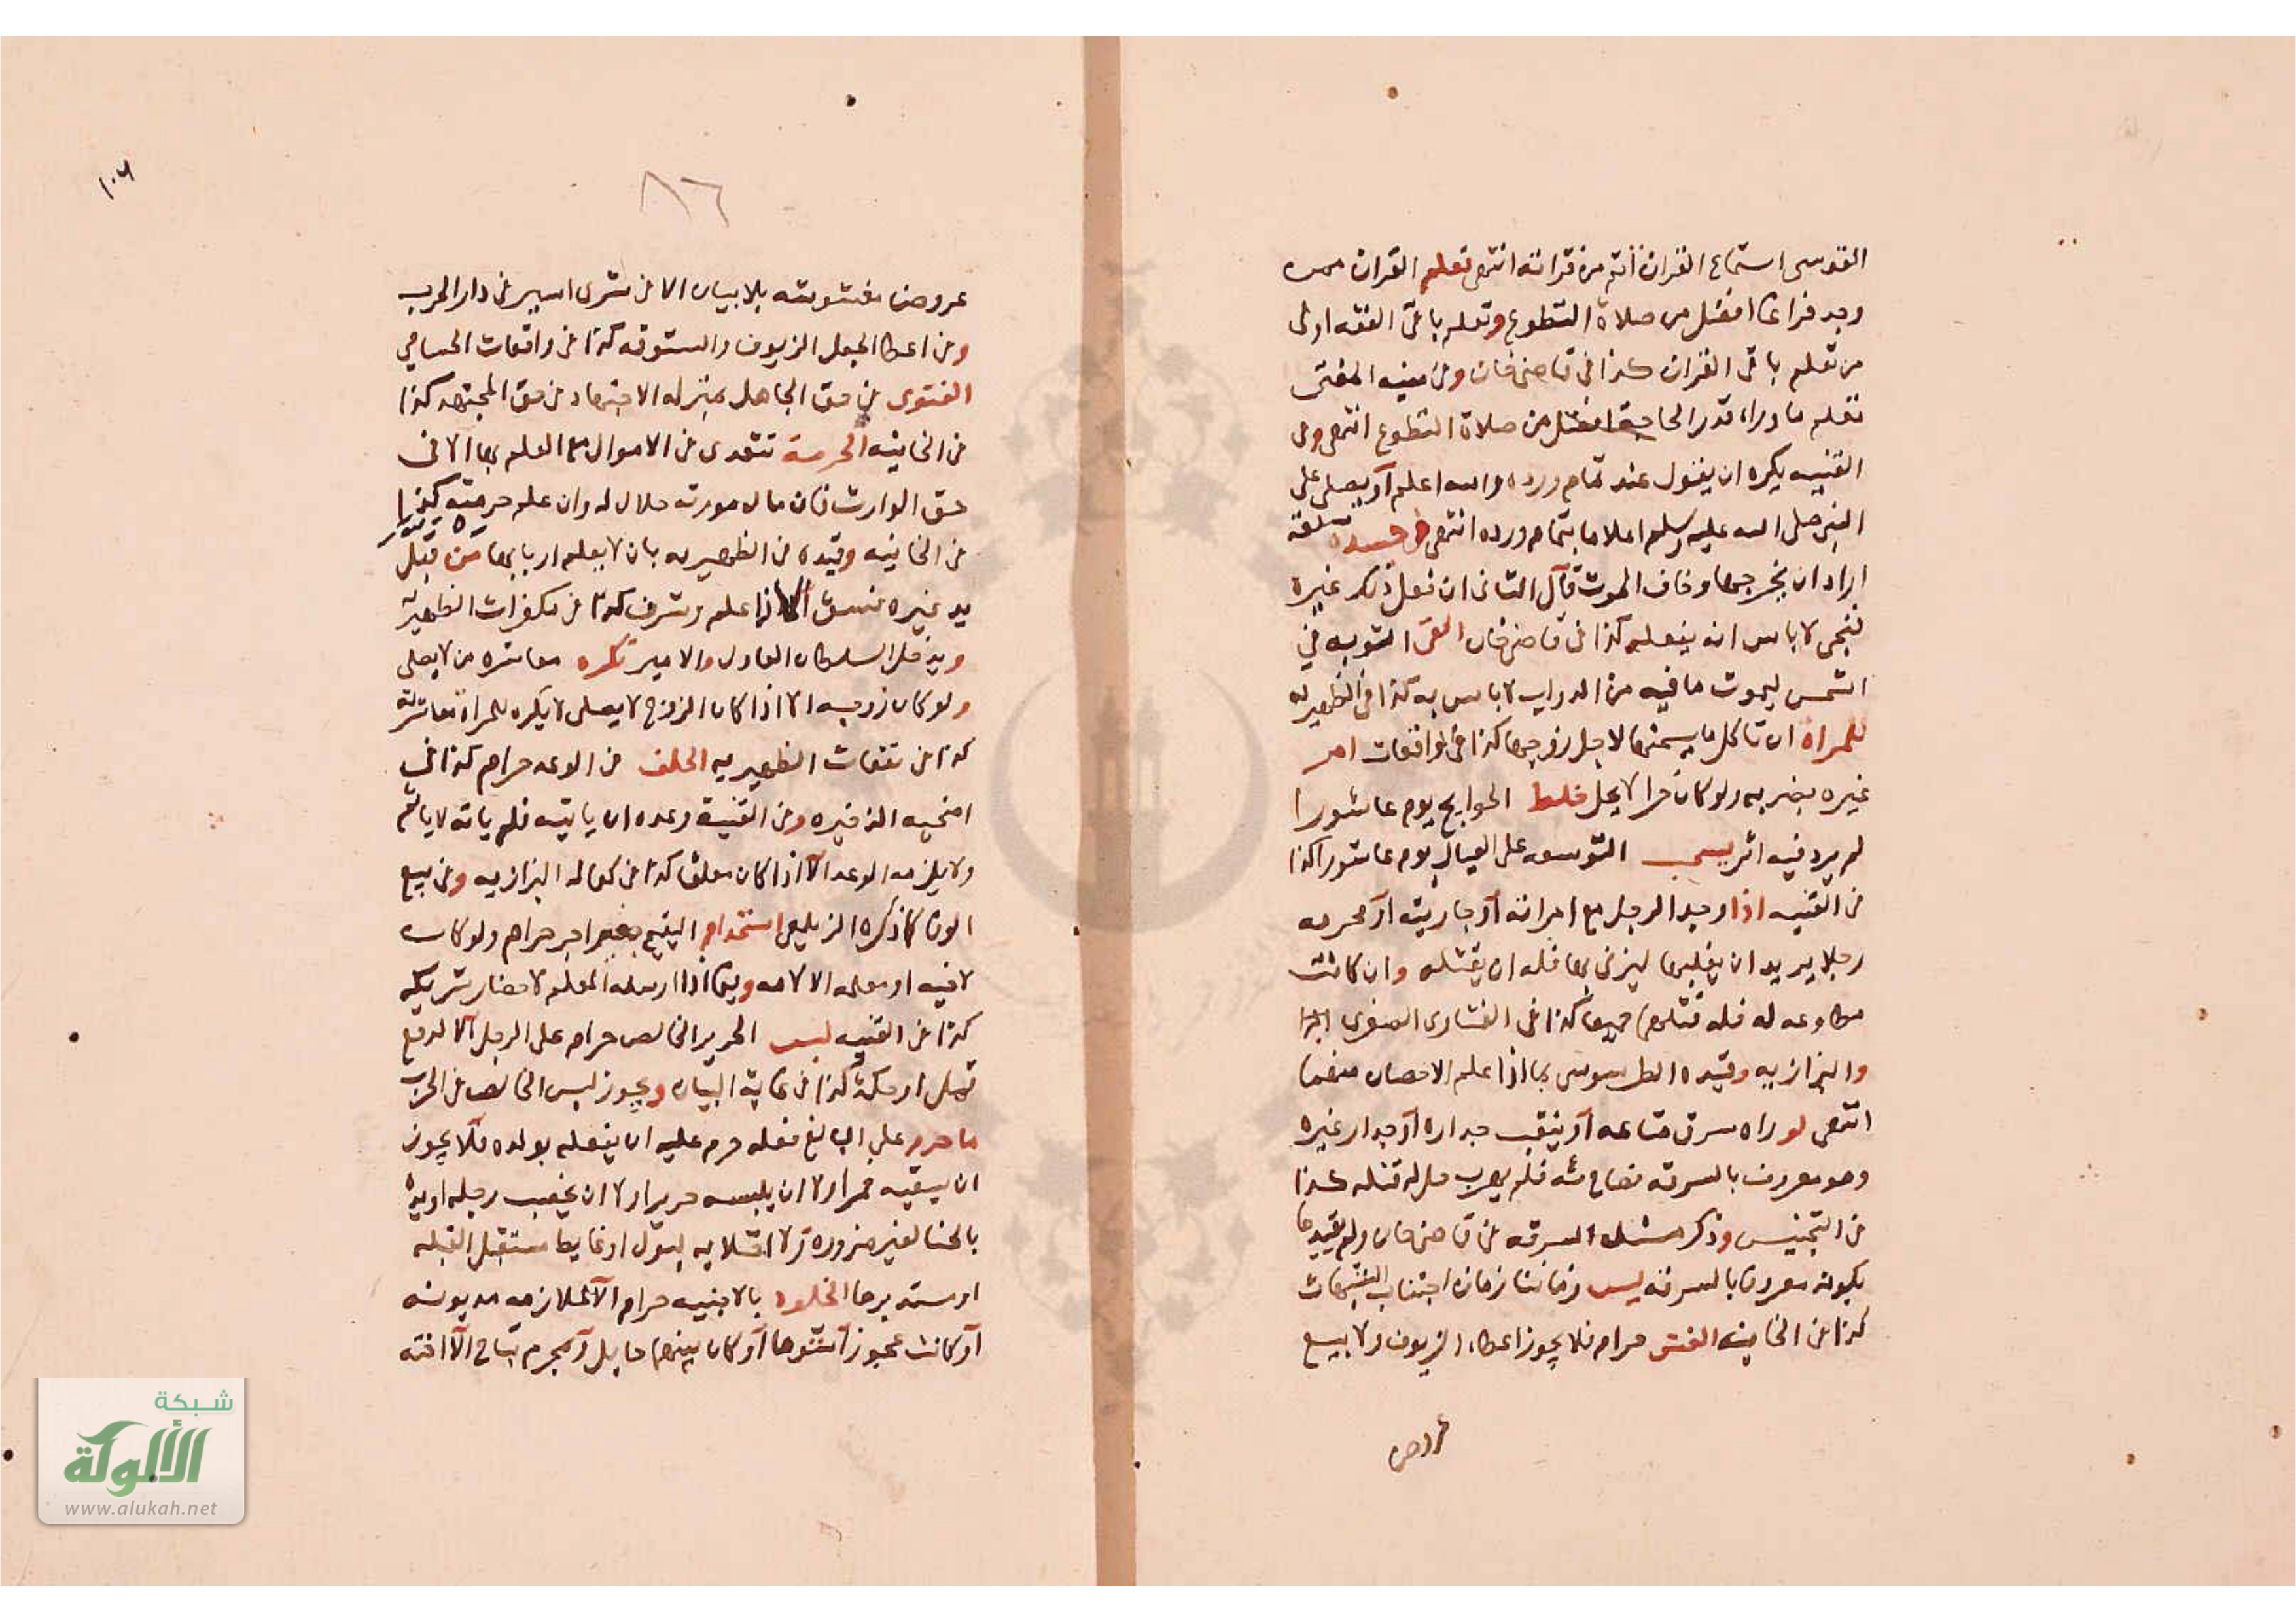 القدسى استماع القران أثم من قرانته انتهى تعلم القران ممن
وجد فراغا افضل من صلاة التطوع وتعلم باقى الفقه اولى
من تعلم باقى القران كذا فى قاضى خان وفى منيه المفتى
تعلم ما وراء قدر الحاجة افضل من صلاة التطوع انتهى وفى
القنيه يكره ان يقول عند تمام ورده والله اعلم أو يصلى على
النبى صلى الله عليه وسلم اعلاما بتمام ورده انتهى
اراد ان يخرجها وخاف الموت قآل الثانى ان فعل ذلك غيره
لا باس انه يفعله كذا فى قاضى خان القى الثوب فى
الشمس ليموت ما فيه من الدواب لا باس به كذا فى الظهيريه
للمراة ان تاكل ما يسمنها لاجل زوجها كذا فى الواقعات امر
غيره بضربه ولو كان حرا لا يحل خلط الحوايج يوم عاشورا
لم يرد فيه اثر يستحب التوسعه على العيال يوم عاشورا كذا
فى القنيه اذا وجد الرجل مع امراته أو جاريته أو محرمه
رجلا يريد ان يغلبها ليزنى بها فله ان يقتله وان كانت
مطاوعه له فله قتلهما جميعا كذا فى الفتاوى الصغرى
والبزازيه وقيده الطرسوسى بما اذا علم الاحصان منهما
انتهى لو راه سرق متاعه أو ينقب جداره أو جدار غيره
وهو معروف بالسرقه فصاح به فلم يهرب حل له قتله كذا
فى التجنيس وذكر مسئله السرقه فى قاضى خان ولم يقيدها
بكونه معروفا بالسرقه ليس زماننا زمان اجتناب الشبهات
كذا فى الخانيه الغش حرام فلا يجوز اعطاء الزيوف ولا بيع
عروض
١٠٦
٨٦
عروض مغشوشه بلا بيان الا فى شرى اسير فى دار الحرب
وفى اعطا الجعل الزيوف والستوقه كذا فى واقعات الحسامي
الفتوى فى حق الجاهل بمنزله الاجتهاد فى حق المجتهد كذا
فى الخانيه الحرمة تتعدى فى الاموال مع العلم بها الا فى
حق الوارث فان مال مورثه حلال له وان علم حرمته كذا
فى الخانيه وقيده فى الظهيريه بان لا يعلم اربابها من قبل
يد غيره فسق الا اذا علم وشرف كذا فى مكفرات الظهيرية
ويدخل السلطان العادل والامير تكره معاشره من لا يصلى
ولو كان زوجه الا اذا كان الزوج لا يصلى لا يكره للمراة معاشرته
كذا فى نفقات الظهيريه الخلف فى الوعد حرام كذا فى
اضحيه الذخيره وفى القنية وعده ان ياتيه فلم ياته لا ياثم
ولا يلزمه الوعد الآ اذا كان معلقا كذا فى كفاله البزازيه وفى بيع
الوفا كما ذكره الزيلعى استخدام اليتيم بغير اجر حرام ولو كان
لاخيه او معلمه الا لامه وفيما اذا ارسله المعلم لاحضار شريكه
كذا فى القنيه لبس الحرير الخالص حرام على الرجل الآ لدفع
قمل او حكة كذا فى غاية البيان ويجوز لبس الخالص فى الحرب
ما حرم على البالغ فعله حرم عليه ان يفعله بولده فلآ يجوز
ان يسقيه خمرا ولا ان يلبسه حريرا ولا ان يخضب رجله او يده
بالحنا لغير ضروره ولا اجلاسه لبول او غايط مستقبل القبله
او مستدبرها الخلوه بالاجنبيه حرام الآ لملازمه مديونه
أو كانت عجوز شوها أو كان بينهما حايل والمحرم تباح الآ اخته
شبكة
الألوكة
www.alukah.net